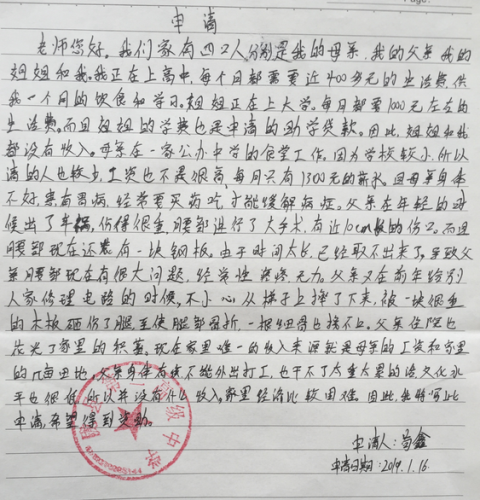 申请
老师您好,我们家有四口人分别是我的母亲,我的父亲,我的
姐姐和我。我正在上高中,每个月都需要近400多元的生活费,供
我一个月的饮食和学习。姐姐正在上大学。每月都要1000元左右的
生活费。而且姐姐的学费也是申请的助学贷款。因此,姐姐和我
都没有收入。母亲在一家公办中学的食堂工作,因为学校较小,所以
请的人也较少,工资也不是很高,每月只有1300元的薪水。且母亲身体
不好,患有胃病,经常要买药吃,才能缓解病症。父亲在年轻的时
候出了车祸,伤得很重,腰部进行了大手术,有近10cm的伤口。而且
腰部现在还有一块钢板,由于时间太长,已经取不出来了。导致父
亲腰部现在有很大问题,经常性疼痛,无力。父亲又在前年给别
人家修理电路的时候,不小心从梯子上摔了下来,被一块很重
的木板砸伤了腿,至使腿部骨折,一根细骨也接不上。父亲住院也
花光了家里的积蓄。现在家里唯一的收入来源就是母亲的工资和家里
的几亩田地,父亲身体有疾不能外出打工,也干不了太重太累的活,文化水
平也很低,所以并没有什么收入,家里经济比较困难。因此,我特写此
申请,希望得到资助。
级中学
申请人:苟鑫
申请日期:2019.1.16